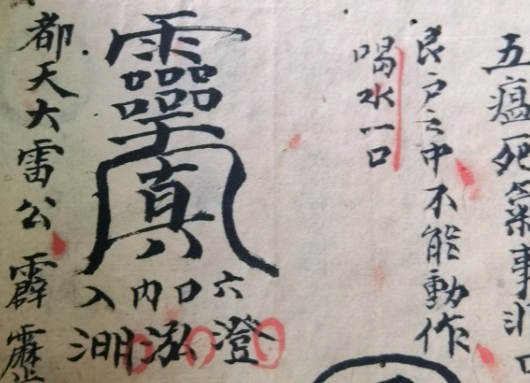 五瘟死
良户之中不能動作
喝水一口
六口内入
澄泓淜
都天大雷公霹靂